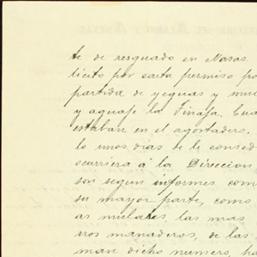 te de resguado en Masas
licito por carta permiso pa
partida de yeguas y mul
y aguaje la Tinaja. Cua
estaban en el agostadero,
lo unos dias le te consed
ocurriera á la Direccion
son segun informes com
su mayor parte, como
as mulares las mas
eros manaderos, de las
man dicho numero, ha